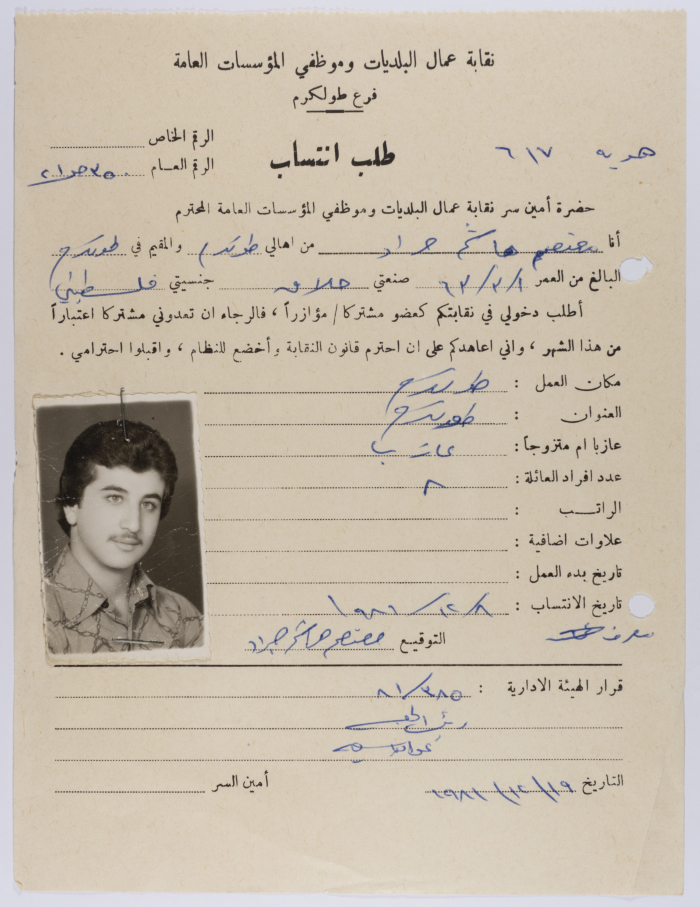 نقابة عمال البلديات وموظفي المؤسسات العامة
فرع طولكرم
الرقم الخاص
هوية ٦١٧
طلب انتساب
الرقم العـــام
حضرة أمين سر نقابة عمال البلديات وموظفي المؤسسات العامة المحترم
أنا معتصم هاشم جراد من اهالي طولكرم والمقيم في طولكرم
البالغ من العمر ٦٣/٣/١ صنعتي حلاق جنسيتي فلسطيني
أطلب دخولي في نقابتكم كعضو مشتركا / مؤازراً ، فالرجاء ان تعدوني مشتركا اعتباراً
من هذا الشهر ، واني اعاهدكم على ان احترم قانون النقابة وأخضع للنظام ، واقبلوا احترامي .
مكان العمل : طولكرم
العنوان : طولكرم
عازبا ام متزوجاً : عازب
عدد افراد العائلة : ٨
الراتـــب :
علاوات اضافية :
تاريخ بدء العمل :
تاريخ الانتساب : ١٩٨١/١٢/٨
التوقيع معتصم هاشم جراد
قرار الهيئة الادارية : ٨١/٣٨٥
التاريخ ١٩٨١/١٢/١٩ أمين السر